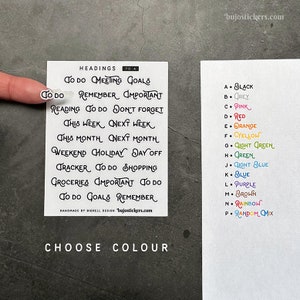 *bujostickers.com
HEADINGS
TO DO MEETING GOALS
TO DO REMEMBER IMPORTANT
READING TO DO DON'T FORGET
THIS WEEK NEXT WEEK
THIS MONTH NEXT MONTH
WEEKEND HOLIDAY DAY OFF
TRACKER TO DO SHOPPING
GROCERIES IMPORTANT TO DO
TO DO GOALS REMEMBER
HANDMADE BY MIDRELL DESIGN *bujostickers.com
CHOOSE COLOUR
A • BLACK
B • GREY
C • PINK
D • RED
E • ORANGE
F • YELLOW
G • LIGHT GREEN
H • GREEN
J • LIGHT BLUE
K • BLUE
L • PURPLE
M • BROWN
N • RAINBOW
P • RANDOM MIX